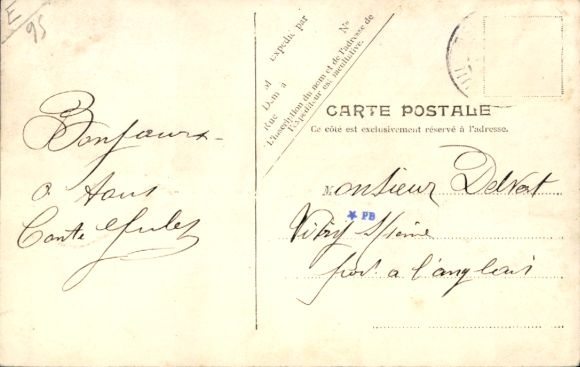 E
95
M
Expédié par
Dem. à
Rue
No
L'inscription du nom et de l'adresse de
l'expéditeur est facultative.
CARTE POSTALE
Ce côté est exclusivement réservé à l'adresse.
Bonjour
a tous
Jules
Monsieur Delvat
PB
Vitry s/seine
port a l'anglais